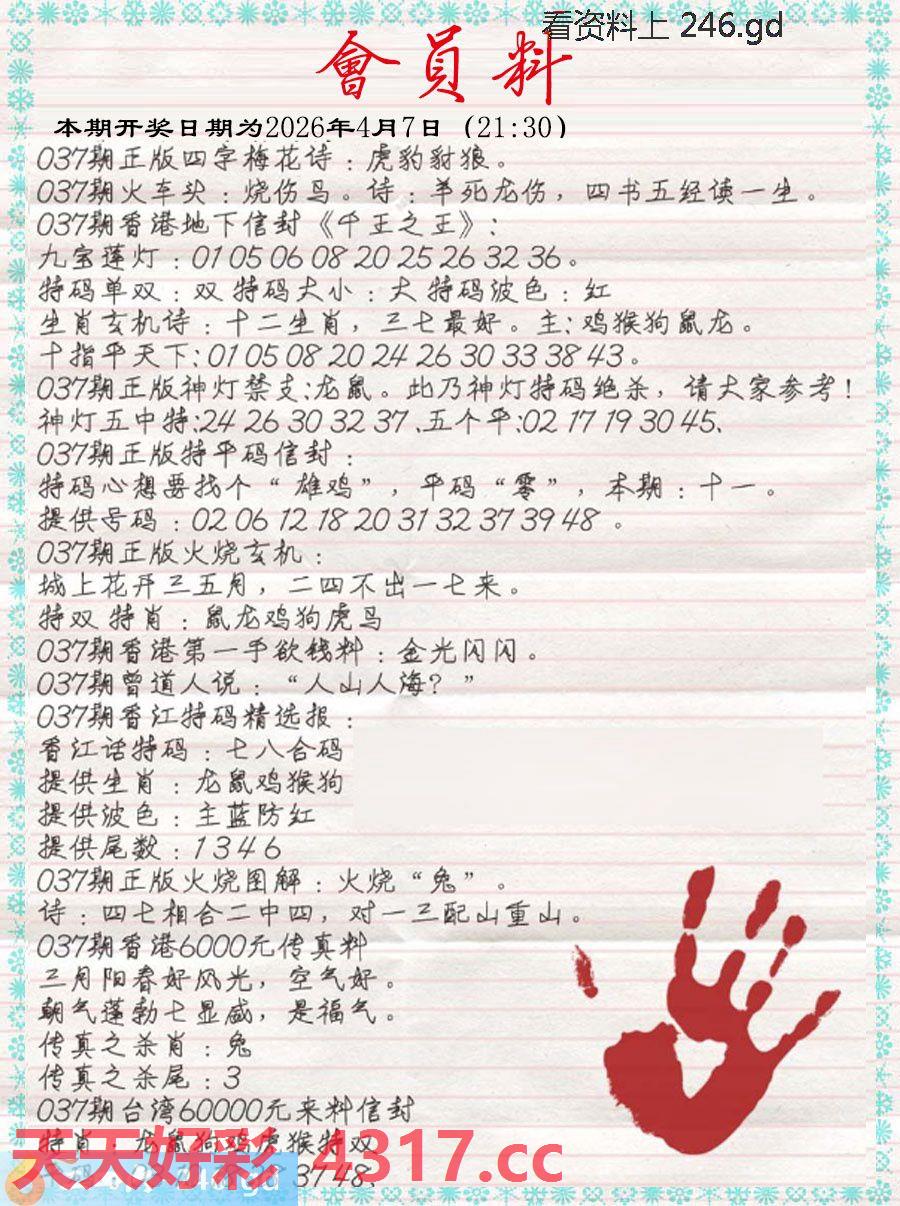 看资料上 246.gd
會員料
本期开奖日期为2026年4月7日（21:30）
037期正版四字梅花诗：虎豹豺狼。
037期火车头：烧伤鸟。诗：羊死龙伤，四书五经读一生。
037期香港地下信封《千王之王》：
九宝莲灯：01 05 06 08 20 25 26 32 36。
特码单双：双 特码大小：大 特码波色：红
生肖玄机诗：十二生肖，三七最好。主：鸡猴狗鼠龙。
十指平天下：01 05 08 20 24 26 30 33 38 43。
037期正版神灯禁支：龙鼠。此乃神灯特码绝杀，请大家参考！
神灯五中特：24 26 30 32 37、五个平：02 17 19 30 45、
037期正版特平码信封：
特码心想要找个“雄鸡”，平码“零”，本期：十一。
提供号码：02 06 12 18 20 31 32 37 39 48 。
037期正版火烧玄机：
城上花开三五月，二四不出一七来。
特双 特肖：鼠龙鸡狗虎马
037期香港第一手欲钱料：金光闪闪。
037期曾道人说：“人山人海？”
037期香江特码精选报：
香江话特码：七八合码
提供生肖：龙鼠鸡猴狗
提供波色：主蓝防红
提供尾数：1 3 4 6
037期正版火烧图解：火烧“兔”。
诗：四七相合二中四，对一三配山重山。
037期香港6000元传真料
三月阳春好风光，空气好。
朝气蓬勃七显威，是福气。
传真之杀肖：兔
传真之杀尾：3
037期台湾60000元来料信封
特肖：龙鼠狗鸡虎猴特双
天天好彩 4317.cc
246.gd
37 48、